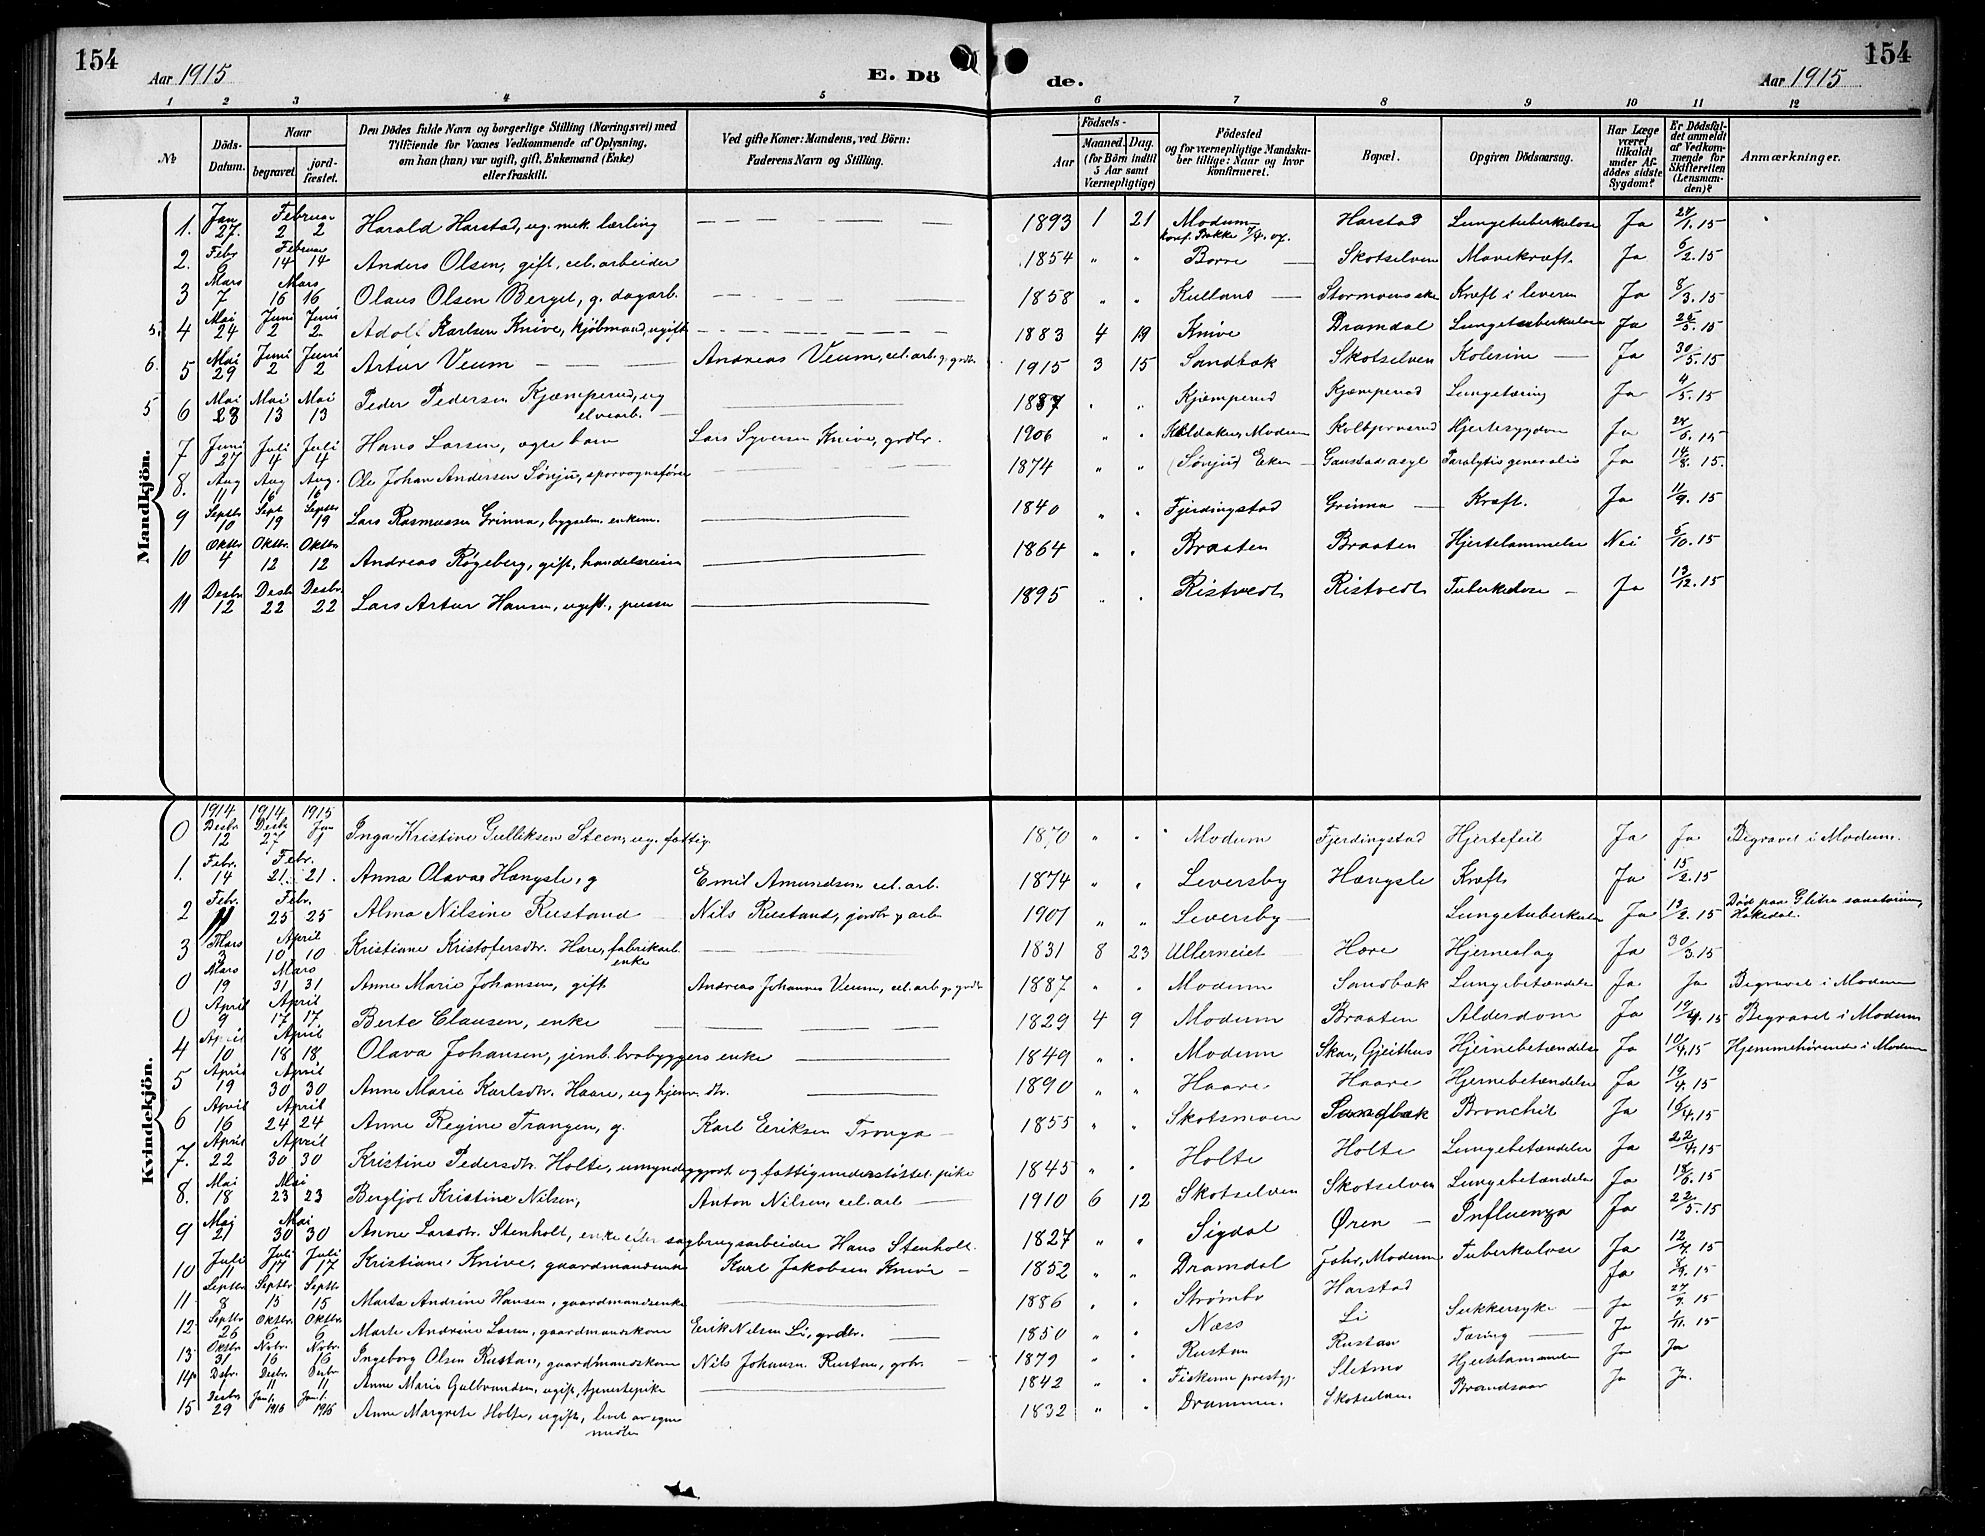 154
Aar 1915
E. Dö
de.
Aar 1915
154
1 2 3 4 5 6 7 8 9 10 11 12
No
Döds-Datum.
Naar
begravet.
jord-fæstet.
Den Dödes fulde Navn og borgerlige Stilling (Næringsvei) med
Tilföiende for Voxnes Vedkommende af Oplysning,
om han (hun) var ugift, gift, Enkemand (Enke)
eller fraskilt.
Ved gifte Koner: Mandens, ved Börn:
Faderens Navn og Stilling.
Födsels-
Aar
Maaned. Dag.
(for Börn indtil
5 Aar samt
Værnepligtige)
Födested
og for værnepligtige Mandska-
ber tillige: Naar og hvor
konfirmeret.
Bopæl.
Opgiven Dödsaarsag.
Har Læge
været
tilkaldt
under Af-
dödes sidste
Sygdom?
Er Dödsfal-
det anmeldt
af Vedkom-
mende for
Skifteretten
(Lensman-
den)?
Anmærkninger.
Mandkjön.
1. Jan 27. Februar 2 2 Harald Harstad, ug. mek. lærling 1893 1 21 Modum konf. Bakke 7/4. 07. Harstad Lungetuberkulose Ja 27/1.15
2. Feby 6 Februar 14 14 Anders Olsen, gift, cel. arbeider 1854 " " Borre Skotselven Mavekræft. Ja 6/2.15
3 Mars 7 Mars 16 16 Olaus Olsen Berget, g. dagarb. 1858 " " Kulland Kræft i leveren Ja 8/3.15
5. 4 Mai 24 Juni 2 Juni 2 Adolf Karlsen Knive, kjöbmand, ugift 1883 4 19 Knive Dramdal Lungetuberkulose Ja 25/5.15
6. 5 Mai 29 Juni 2 Juni 2 Artur Veum Andreas Veum, cel. arb. g. grdbr. 1915 3 15 Sandbæk Skotselven Kolerine Ja 30/5.15
5 6 Mai 28 Mai 13 Mai 13 Peder Pedersen Kjæmperud, ug elvearb. 1887 " " Kjæmperud Kjæmperud Lungetæring Ja 4/5.15
7 Juni 27 Juli 4 Juli 4 Hans Larsen, egte barn Lars Syversen Knive, grdbr. 1906 " " Modum Kolbjørnsrud Hjertesygdom Ja
8. Aug 11 Aug 16 Aug. 16 Ole Johan Andersen Sønju, sporvognsfører 1874 " " (Sønju) Eker Gaustad asyl Paralytis generalis Ja 14/8.15.
9 Septbr 10 Sept 19 Septbr 19 Lars Rasmussen Grinna, bygselm. enkem. 1840 " " Fjerdingstad Grinna Kræft. Ja 11/9.15
10 Oktbr 4 Oktbr. 12 Oktbr 12 Andreas Røgeberg, gift, handelsreisen 1864 " " Braaten Braaten Hjertelammelse Nei 5/10.15
11 Desbr 12 Desbr 22 Desbr. 22 Lars Artur Hansen, ugift, 1895 " " Ristvedt Ristvedt Tuberkulose Ja 13/12.15
Kvindekjön.
0 1914 Desbr 12 1914 Desbr 27 1915 Jan 1 Inga Kristine Gulliksen Steen, ug. fattig. 1870 " " Modum Fjerdingstad Hjertefeil Ja Ja Begravet i Modum.
1. Febr. 14 Febr. 21. 21. Anna Olava Hængsle, g Emil Amundsen cel. arb. 1874 " " Leversby Hængsle Kræft Ja 15/2.15
2 Febr. 11 Febr. 25 25 Alma Nilsine Rustand Nils Rustand, jordbr g arb 1901 " " Leversby Lungetuberkulose Ja 13/2.15 Död paa Glitre sanatorium, Hakedal.
3 Mars 3 April 10 10 Kristiane Kristofersdtr. Hære, fabrikarb. enke 1831 8 23 Ullerneiet Hære Hjerneslag Ja 30/3.15
0 Mars 19 Mars 31 31 Anne Marie Johansen, gift Andreas Johannes Veum, cel. arb. g. grdbr 1887 " " Modum Sandbæk Lungebetændelse Ja Ja Begravet i Modum
0 April 9 April 17 17 Berte Clausen, enke 1829 4 9 Modum Braaten Alderdom Ja Begravet i Modum
4 April 10 April 18 18 Olava Johansen, jernb. brobyggers enke 1849 " " Modum Skar, Gjeithus Hjernebetændelse Ja 10/4.15 Hjemmehørende i Modum
5 April 19 April 30 30 Anne Marie Karlsdtr. Haare, ug hjemv. dtr. 1890 " " Haare Haare Hjernebetændelse Ja 19/4.15
6 April 16 April 24 24 Anne Regine Trangen, g. Karl Eriksen 1855 " " Skotsmoen Sandbæk Bronchit Ja 16/4.15
7. April 22 April 30 30 Kristine Pedersdtr. Holte, umyndiggjort og fattigunderstöttet pike 1845 " " Holte Holte Lungebetændelse Ja 22/4.15
8. Mai 18 Mai 23 23 Bergljot Kristine Nilsen, Anton Nilsen, cel. arb 1910 6 12 Skotselven Skotselven Lungebetændelse Ja
9 Maj 21 Mai 30 30 Anne Larsdtr. Stenholt, enke efter sagbrugsarbeider Hans Stenholt. 1827 " " Sigdal Øren Influenza Ja 22/5.15
10 Juli 11 Juli 17 Juli 17 Kristiane Knive, gaardmandsenke Karl Jakobsen Knive 1852 " " Dramdal Modum Tuberkulose Ja 12/7.15
11. Septbr 8 Septbr. 15 Septbr 15 Marta Andrine Hansen, gaardmandsenke 1886 " " Strømbo Harstad Ja
12. Septbr 26 Oktbr. 6 Oktbr. 6 Marte Andrine Larsen, gaardmandskone Erik Nilsen Li, grdbr. 1850 " " Næss Li Sukkersyke Ja 27/9.15
13. Oktbr 31 Novbr. 16 Novbr. 16 Ingeborg Olsen Rustan, gaardmandskone Nils Johansen Rustan, gbr. 1879 " " Rustan Rustan Tæring Ja 1/11.15
14 Desbr. 1 Desbr. 11 Desbr 11 Anne Marie Gulbrandsen, ugift, tjenestepike 1842 " " Fiskum prestgj. Sletmo Hjertelammelse Ja Ja
15 Desbr 29 1916 1916 Anne Margrete Holte, ugift, levet av egne midler 1832 " " Drammen. Skotselven. Ja Ja.